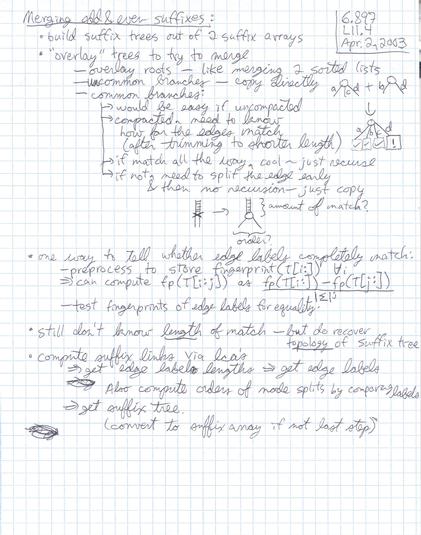 Merging odd & even suffixes:
6.897
L11.4
Apr. 2, 2003
• build suffix trees out of 2 suffix arrays
• "overlay" trees to try to merge
— overlay roots — like merging 2 sorted lists
— uncommon branches — copy directly
— common branches:
a c d + b d
a b c d
→ would be easy if uncompacted
→ compacted → need to know
how far the edges match
(after trimming to shorter length)
→ if match all the way, cool — just recurse
→ if not, need to split the edge early
& then no recursion — just copy
→ } amount of match?
order?
• one way to tell whether edge labels completely match:
— preprocess to store fingerprint(T[i:]) ∀i
⇒ can compute fp(T[i:j]) as fp(T[i:]) - fp(T[j:])
— test fingerprints of edge labels for equality
• still don't know length of match — but do recover
topology of suffix tree
• compute suffix links via lcas
⇒ get edge label lengths ⇒ get edge labels
Also compute orders of node splits by comparing labels
⇒ get suffix tree.
(convert to suffix array if not last step)